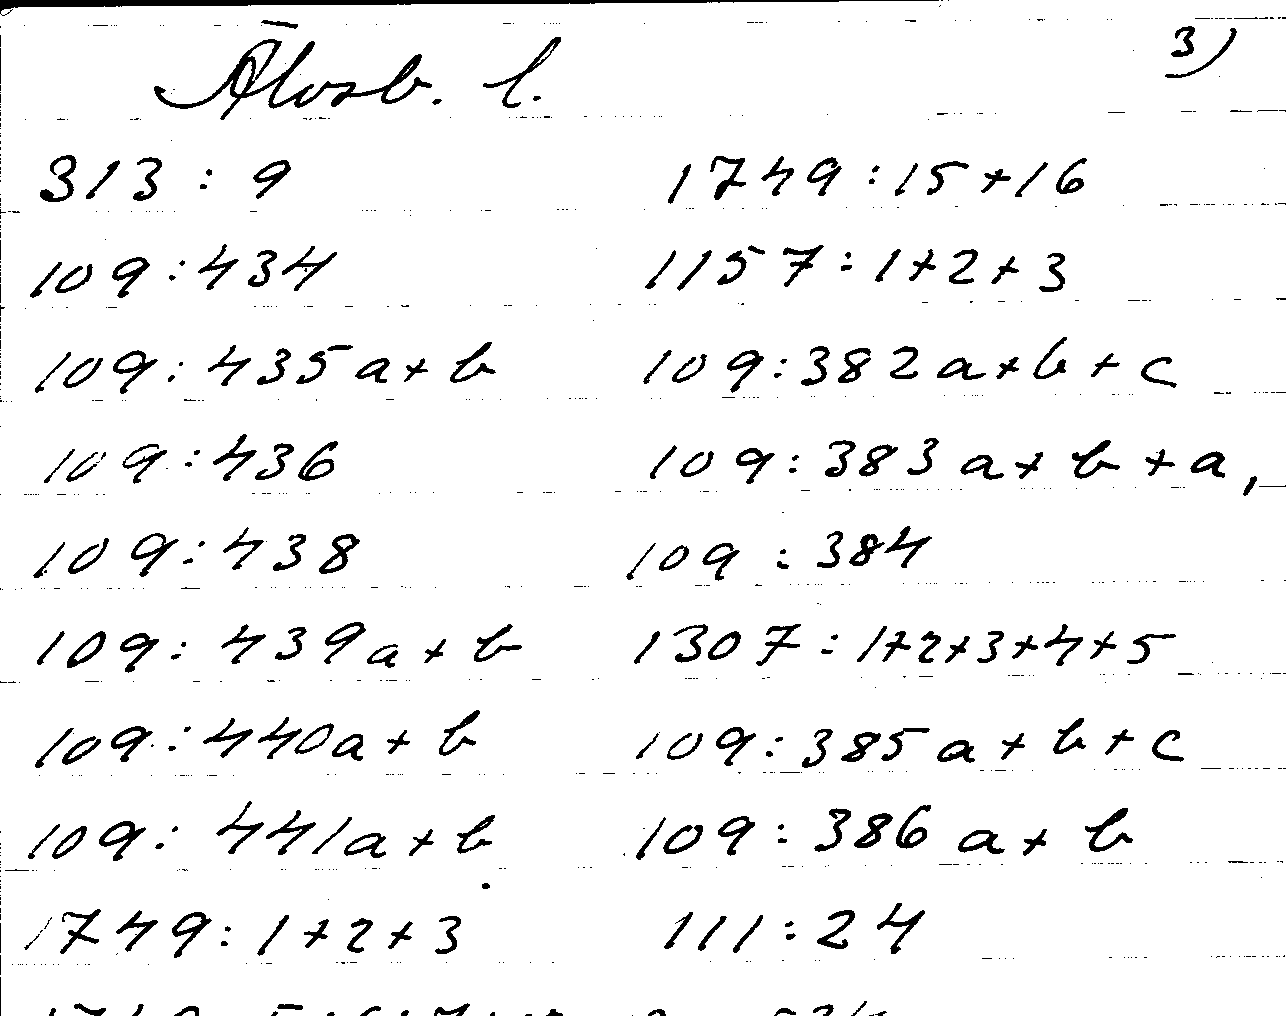 Älvsb. l.
3)
313 : 9
109 : 434
109 : 435 a + b
109 : 436
109 : 438
109 : 439 a + b
109 : 440 a + b
109 : 441 a + b
1749 : 1 + 2 + 3
1749 : 15 + 16
1157 : 1 + 2 + 3
109 : 382 a + b + c
109 : 383 a + b + a,
109 : 384
1307 : 1 + 2 + 3 + 4 + 5
109 : 385 a + b + c
109 : 386 a + b
111 : 24